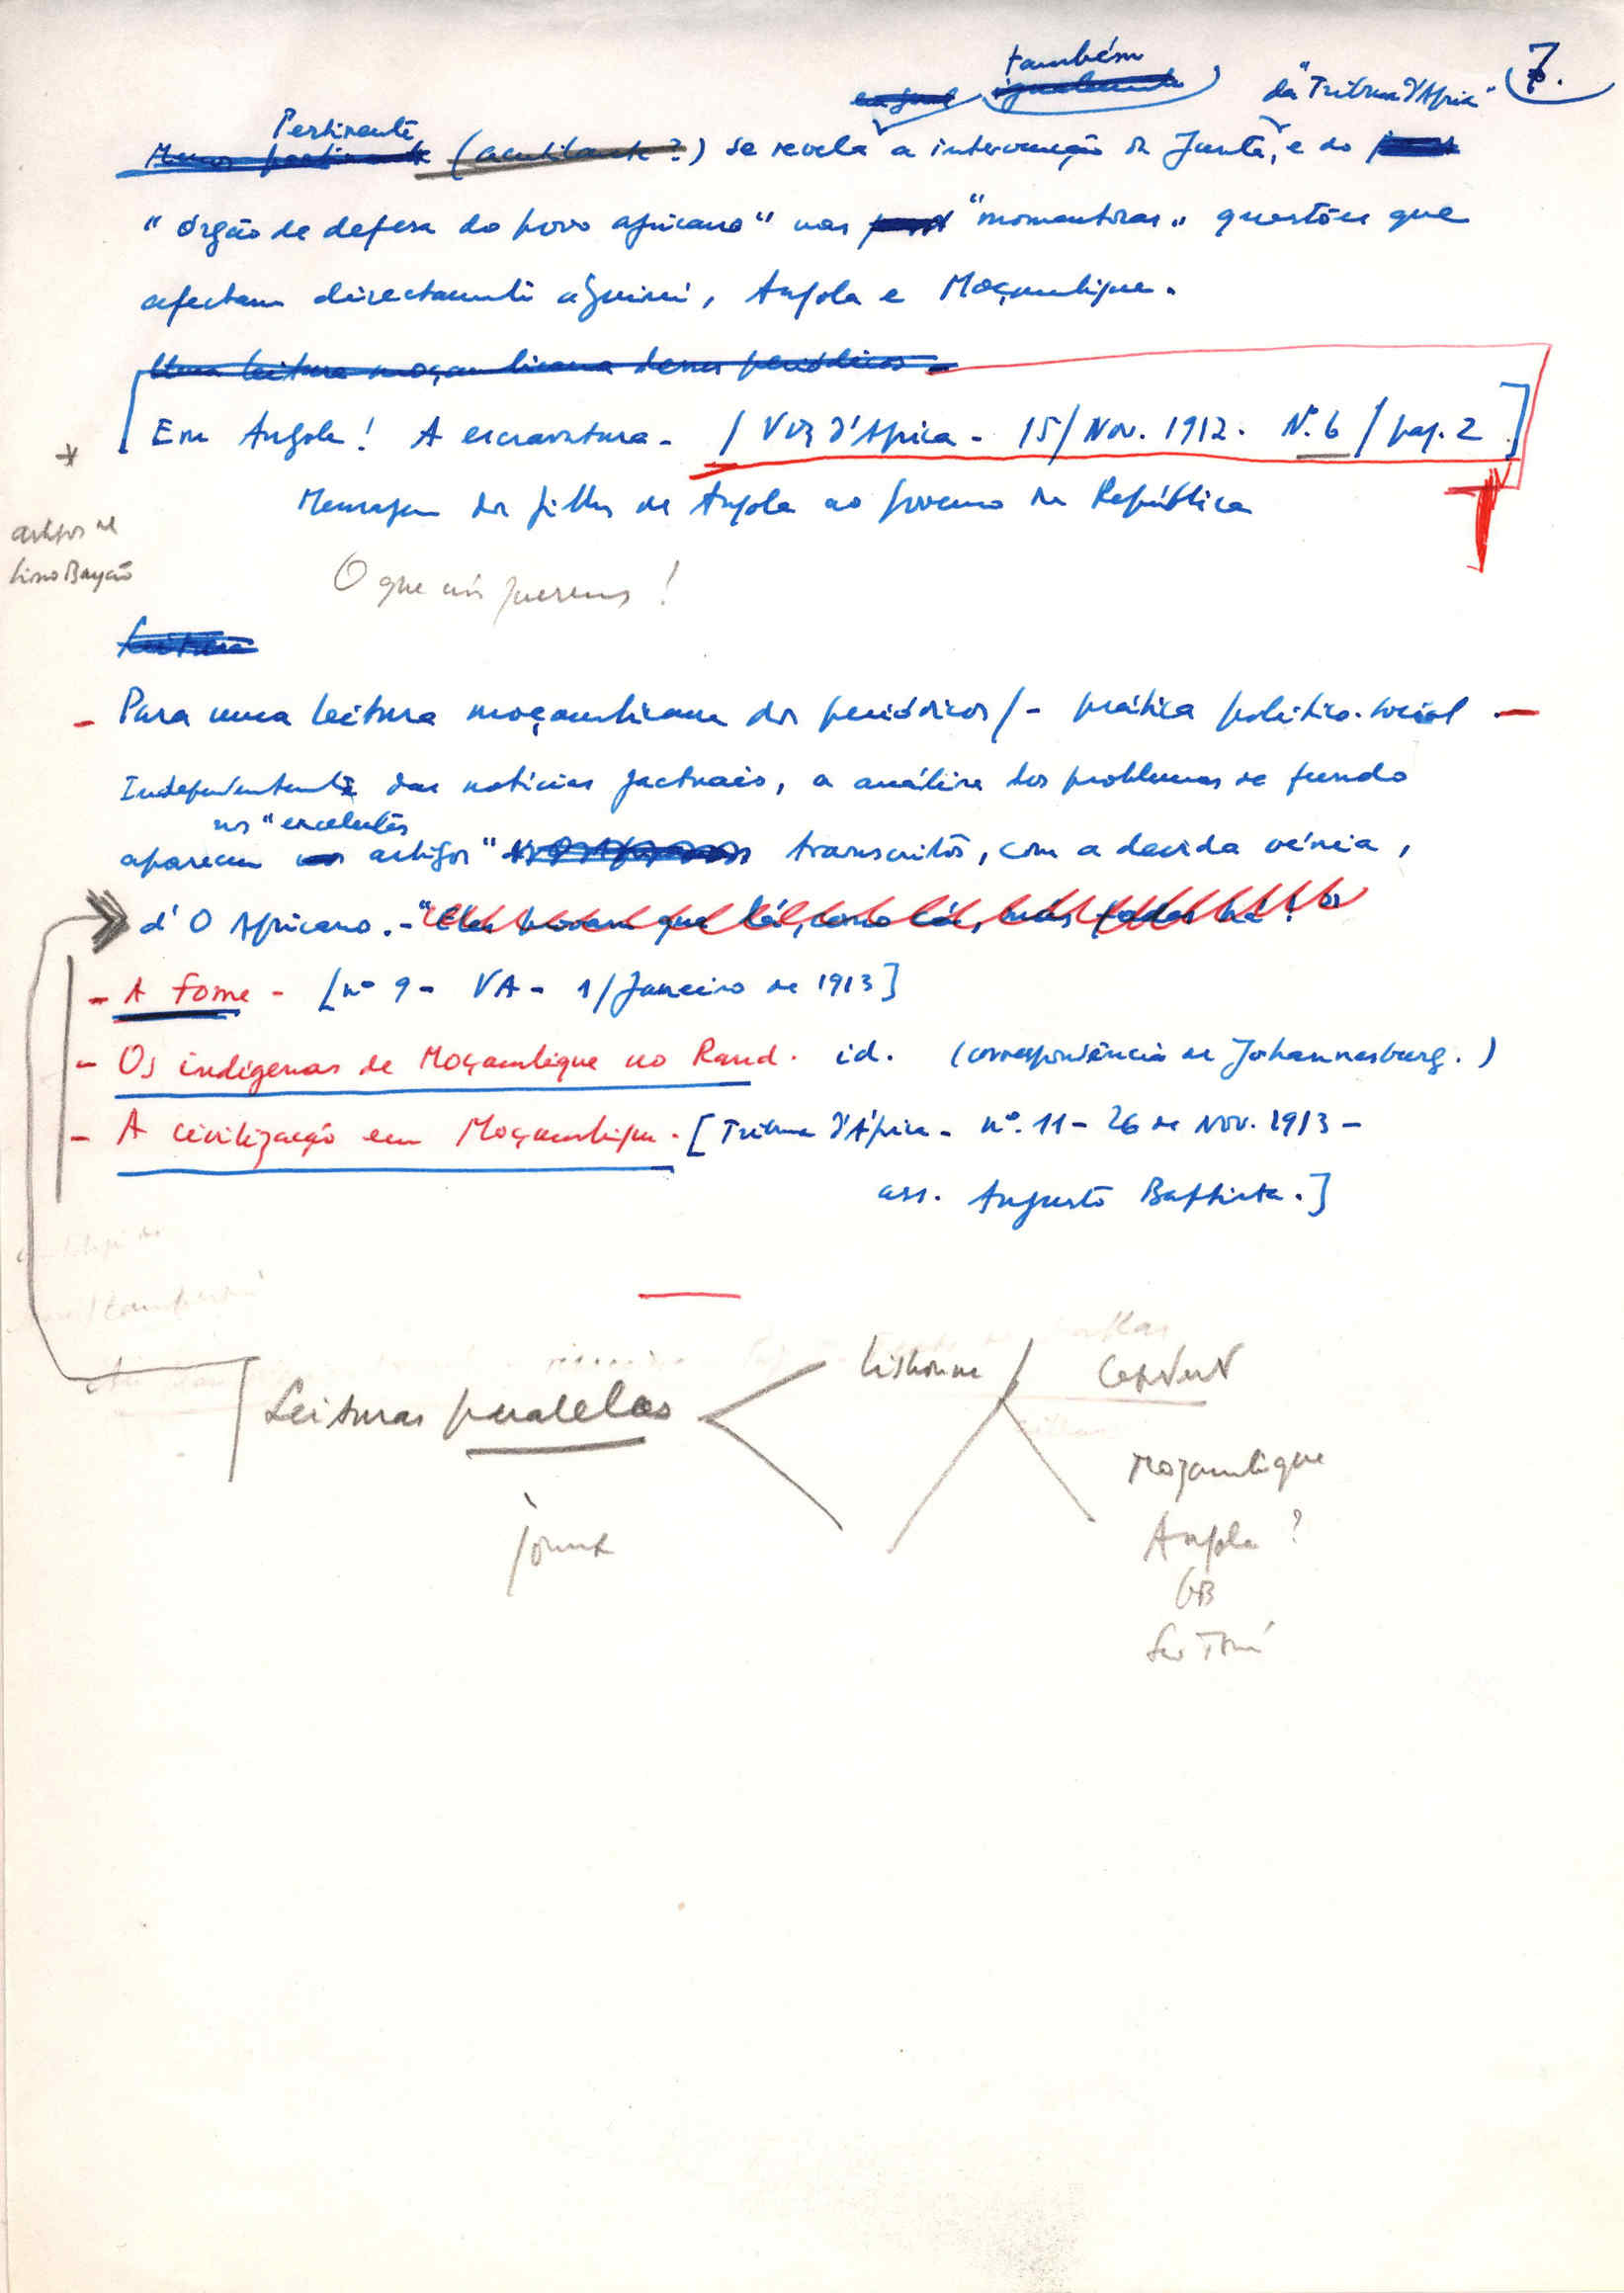 7.
também
da "Tribuna d'Africa"
Pertinente
(acutilante?) se revela a intervenção da Junta, e do
"órgão de defesa do povo africano" nas "momentosas" questões que
afectam directamente a Guiné, Angola e Moçambique.
Uma leitura moçambicana desses periódicos
[Em Angola! A escravatura - / Voz d'Africa - 15/Nov. 1912. Nº. 6 / pag. 2.]
*
Mensagem dos filhos de Angola ao governo da República
artigos de
Lino Bayão
O que nós queremos!
Leitura
- Para uma leitura moçambicana dos periódicos / - prática político-social -
Independentemente das notícias factuais, a análise dos problemas de fundo
nos "excelentes
aparecem artigos" transcritos, com a devida vénia,
d'O Africano. - "Elas provam que lá, como cá, más fadas há!"
- A Fome - [nº 9 - VA - 1/Janeiro de 1913]
- Os indígenas de Moçambique no Rand. id. (correspondência de Johannesburg.)
- A civilização em Moçambique. [Tribuna d'África - nº. 11 - 26 de Nov. 1913 -
ass. Augusto Baptista.]
Leituras paralelas
Lisbonne
Moçambique
Angola ?
GB
São Tomé